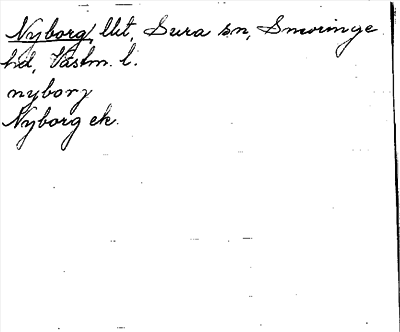 Nyborg, llt, Sura sn, Snevringe
hd, Västm. l.
nyborj
Nyborg ek.